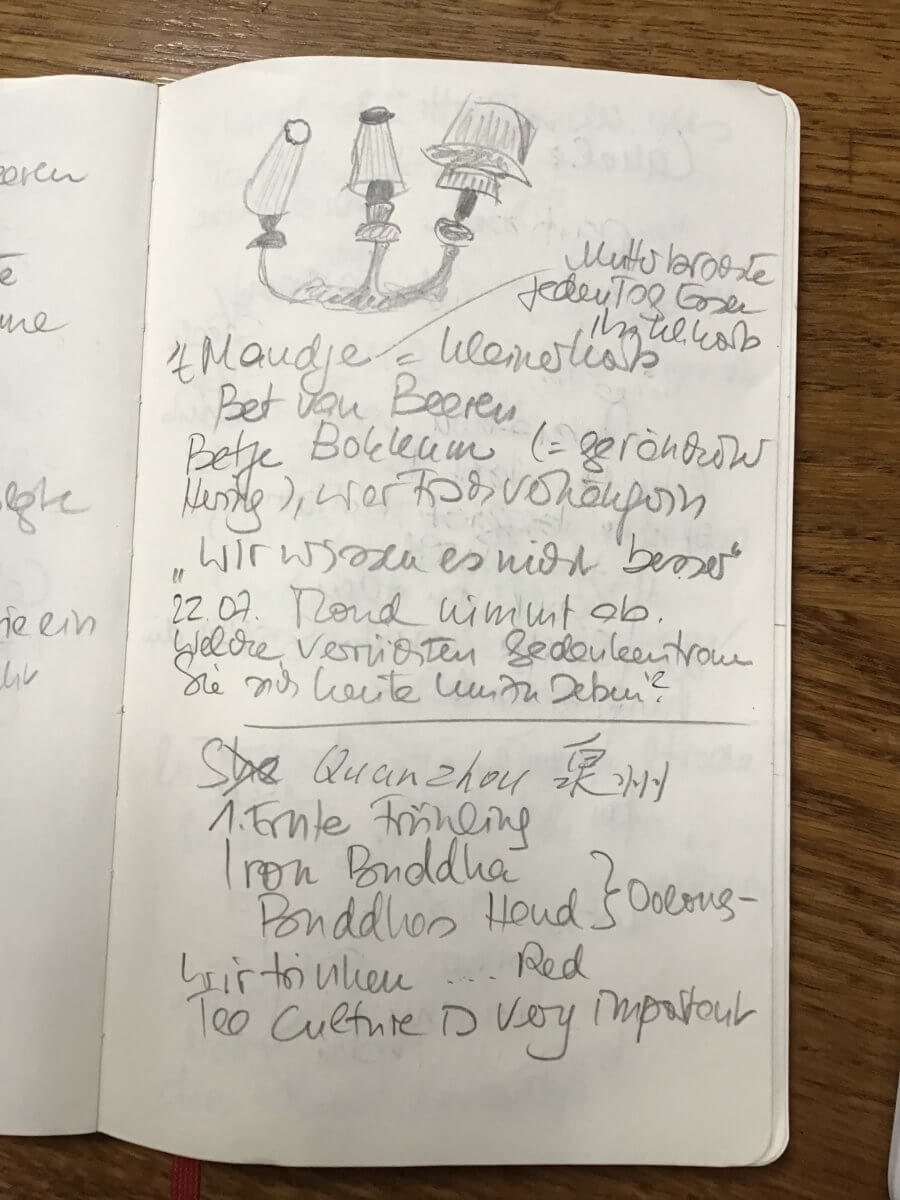 eeren
te
me
lgte
ie ein
hr
Mutter brachte
jeden Tag Essen
Im kl. Korb
't Mandje = kleiner Korb
Bet van Beeren
Betje Bokkum (= geräucherter
Hering), vier Fischverkäuferin
„Wir wissen es nicht besser“
22.07. Mond nimmt ab.
Welche verrückten Gedanken traun
Sie sich heute hinzugeben?
Quanzhou 泉州
1. Ernte Frühling
Iron Bouddha
Bouddhas Hand } Oolong-
Wir trinken .... Red
Tea Culture is very important